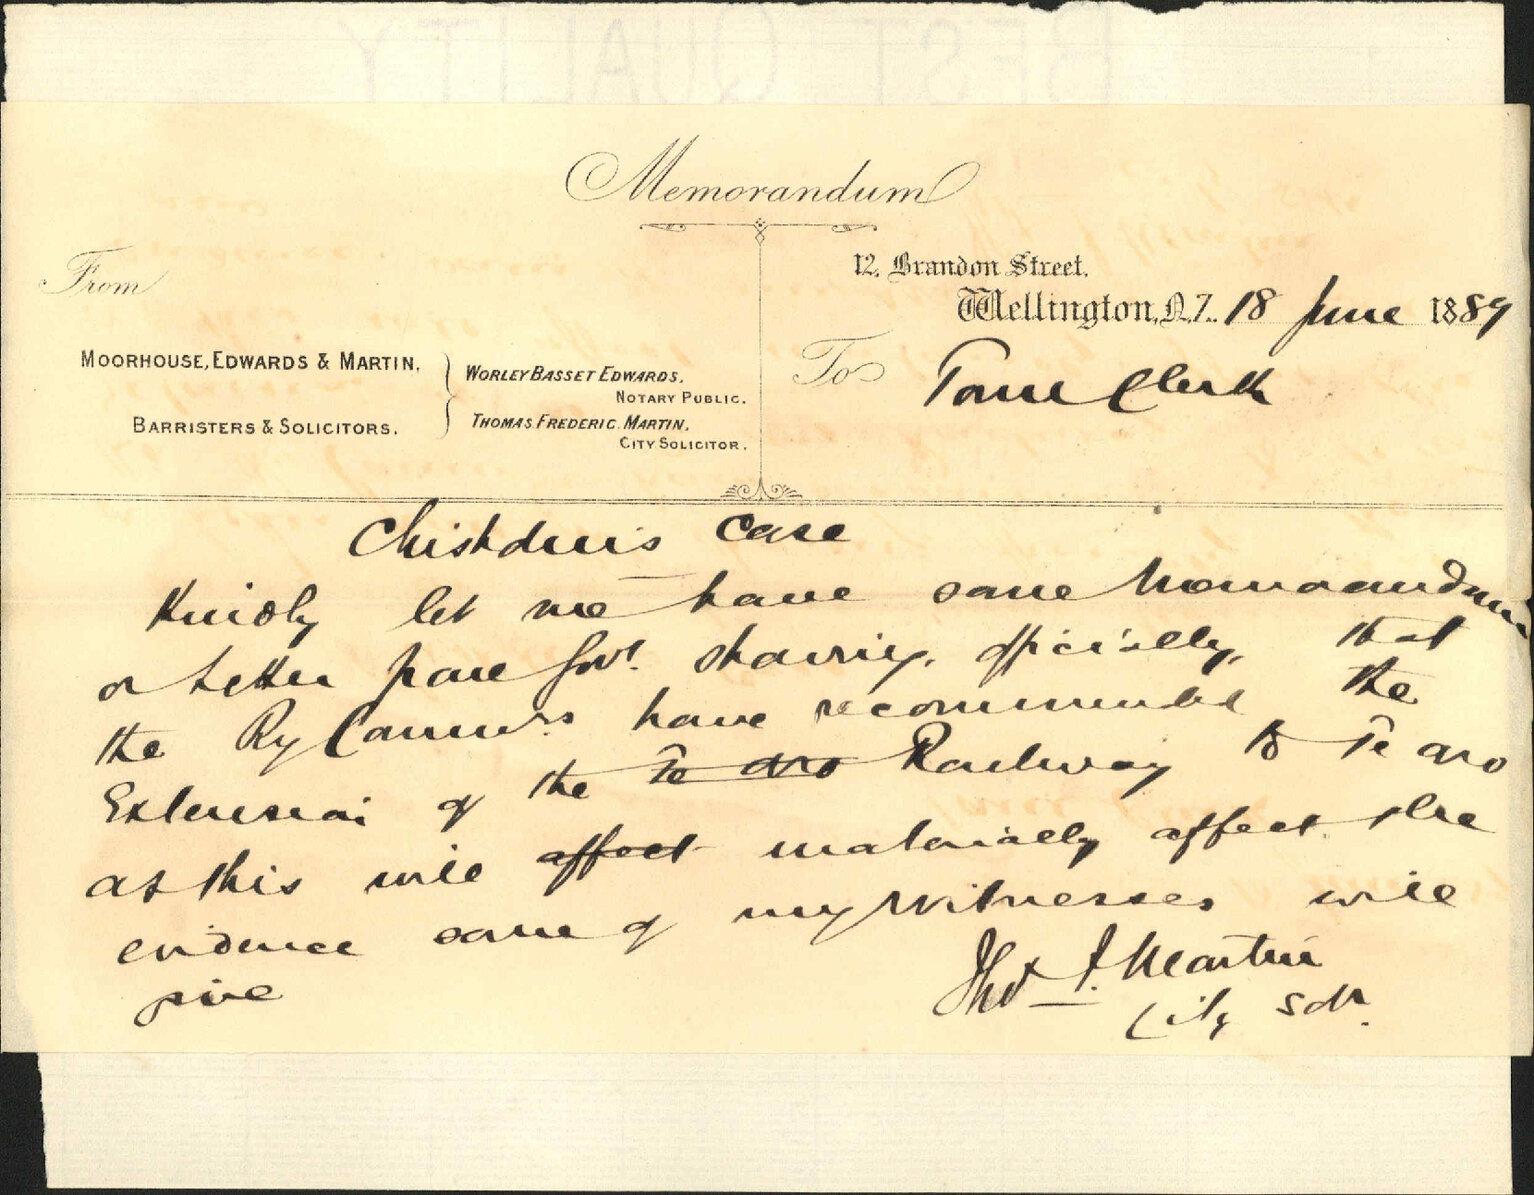 BEST QUALITY
Memorandum
From
12, Brandon Street,
Wellington, N.Z. 18 June 1889
MOORHOUSE, EDWARDS & MARTIN,
BARRISTERS & SOLICITORS.
WORLEY BASSET EDWARDS,
NOTARY PUBLIC.
THOMAS FREDERIC MARTIN,
CITY SOLICITOR.
To Town Clerk
case
Kindly let me have some Memorandum
or letter from Govt. showing, officially, that
the Ry Commrs. have recommended the
Extension of the Te Aro Railway to Te Aro
as this will affect materially affect the
evidence some of my witnesses will
give
Thos F. Martin
City Solr.